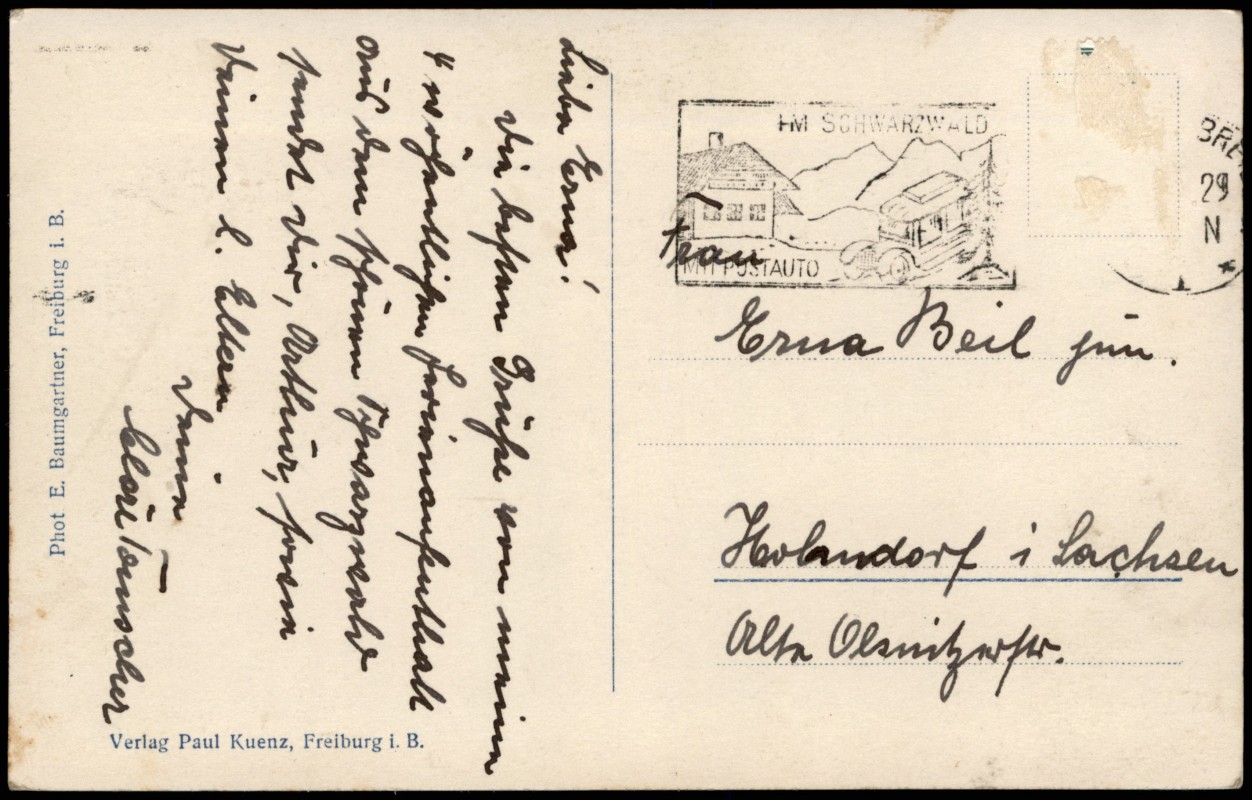 Liebe Erna!
Die besten Grüße von meinem
4 wöchentlichen Ferienaufenthalt
aus dem schönen Schwarzwald
sendet Dir, Arthur, sowie
Deinen l. Eltern
Deine
Tauscher
Phot E. Baumgartner, Freiburg i. B.
Verlag Paul Kuenz, Freiburg i. B.
IM SCHWARZWALD
MIT POSTAUTO
BRE
29
N
Frau
Erna Beil jun.
Hohndorf i Sachsen
Alte Ölsnitzerstr.